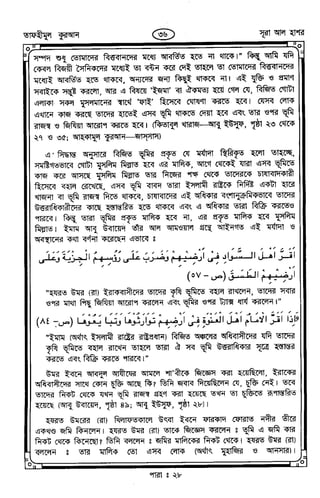 তাফহীমুল কুরআন
৩৬
সূরা আল হাশর
সম্পদ শুধু তোমাদের বিত্তবানদের মধ্যে আবর্তিত হতে না থাকে।" কিন্তু আমি যদি
কেবল বিজয়ী সৈনিকদের মধ্যেই তা বন্টন করে দেই তাহলে তা তোমাদের বিত্তবানদের
মধ্যেই আবর্তিত হতে থাকবে, অন্যদের জন্য কিছুই থাকবে না। এই যুক্তি ও প্রমাণ
সবাইকে সন্তুষ্ট করলো, আর এ বিষয়ে 'ইজমা' বা ঐকমত্য হয়ে গেল যে, বিজিত গোটা
এলাকা সকল মুসলমানের স্বার্থে 'ফাই' হিসেবে ঘোষণা করতে হবে। যেসব লোক
এখানে কাজ করছে তাদের হাতেই এসব ভূমি থাকতে দেয়া হবে এবং তার ওপর ভূমি
রাজস্ব ও জিযিয়া আরোপ করতে হবে। (কিতাবুল খারাজ—আবু ইউসুফ, পৃষ্ঠা ২৩ থেকে
২৭ ও ৩৫; আহকামুল কুরআন—জাস্‌সাস)
এ সিদ্ধান্ত অনুসারে বিজিত ভূমির প্রকৃত যে মর্যাদা স্থিরিকৃত হলো তাহচ্ছে,
সমষ্টিগতভাবে গোটা মুসলিম মিল্লাত হবে এর মালিক, আগে থেকেই যারা এসব ভূমিতে
কাজ করে আসছে মুসলিম মিল্লাত তার নিজের পক্ষ থেকে তাদেরকে চাষাবাদকারী
হিসেবে বহাল রেখেছে, এসব ভূমি বাবদ তারা ইসলামী রাষ্ট্রকে নির্দিষ্ট একটা হারে
খাজনা বা ভূমি রাজস্ব দিতে থাকবে, চাষাবাদের এই অধিকার বংশানুক্রমিকভাবে তাদের
উত্তরাধিকারীদের কাছে হস্তান্তরিত হতে থাকবে এবং এ অধিকার তারা বিক্রি করতেও
পারবে। কিন্তু তারা ভূমির প্রকৃত মালিক হবে না, এর প্রকৃত মালিক হবে মুসলিম
মিল্লাত। ইমাম আবু উবায়েদ তাঁর আল আমওয়াল গ্রন্থে আইনগত এই মর্যাদা ও
অবস্থানের কথা বর্ণনা করেছেন এভাবে ঃ
أقر أهل السواد في أرضيهم وضرب على رؤسهم الجزية وعلى
أرضيهم الطسق (ص - ৫৭)
"হযরত উমর (রা) ইরাকবাসীদের তাদের কৃষি ভূমিতে বহাল রাখলেন, তাদের সবার
ওপর মাথা পিছু জিযিয়া আরোপ করলেন এবং ভূমির ওপর ট্যাক্স ধার্য করলেন।"
فإذا أقر الإمام أهل العنوة في أرضهم توارثوها وتبايعوها (ص - ৮৪)
"ইমাম (অর্থাৎ ইসলামী রাষ্ট্রের রাষ্ট্রপ্রধান) বিজিত অঞ্চলের অধিবাসীদের যদি তাদের
কৃষি ভূমিতে বহাল রাখেন তাহলে তারা ঐ সব ভূমি উত্তরাধিকার সূত্রে হস্তান্তর
করতে এবং বিক্রি করতে পারবে।"
উমর ইবনে আবদুল আযীযের আমলে শা'বীকে জিজ্ঞেস করা হয়েছিলো, ইরাকের
অধিবাসীদের সাথে কোন চুক্তি আছে কি? তিনি জবাব দিয়েছিলেন যে, চুক্তি নেই। তবে
তাদের নিকট থেকে যখন ভূমি রাজস্ব গ্রহণ করা হয়েছে তখন তা চুক্তিতে রূপান্তরিত
হয়েছে (আবু উবায়েদ, পৃষ্ঠা ৪৯; আবু ইউসুফ, পৃষ্ঠা ২৮)।
হযরত উমরের (রা) খিলাফতকালে উৎবা ইবনে ফারকাদ ফোরাত নদীর তীরে
একখণ্ড জমি কিনলেন। হযরত উমর (রা) তাকে জিজ্ঞেস করলেন ঃ তুমি এ জমি কার
নিকট থেকে কিনেছো? তিনি বললেন ঃ জমির মালিকের নিকট থেকে। হযরত উমর (রা)
বললেন ঃ তার মালিক তো এসব লোক (অর্থাৎ মুহাজির ও আনসার)।
পারা ঃ ২৮